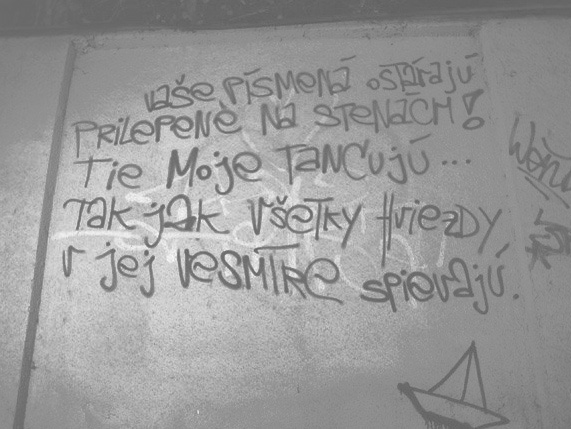 vaše PÍSMENÁ ostárajú
PRILEPENÉ NA STENÁCH!
Tie Moje TANCUjÚ...
Tak jak VŠETKY HVIEZDY
v jej VESMÍRE spievajú.